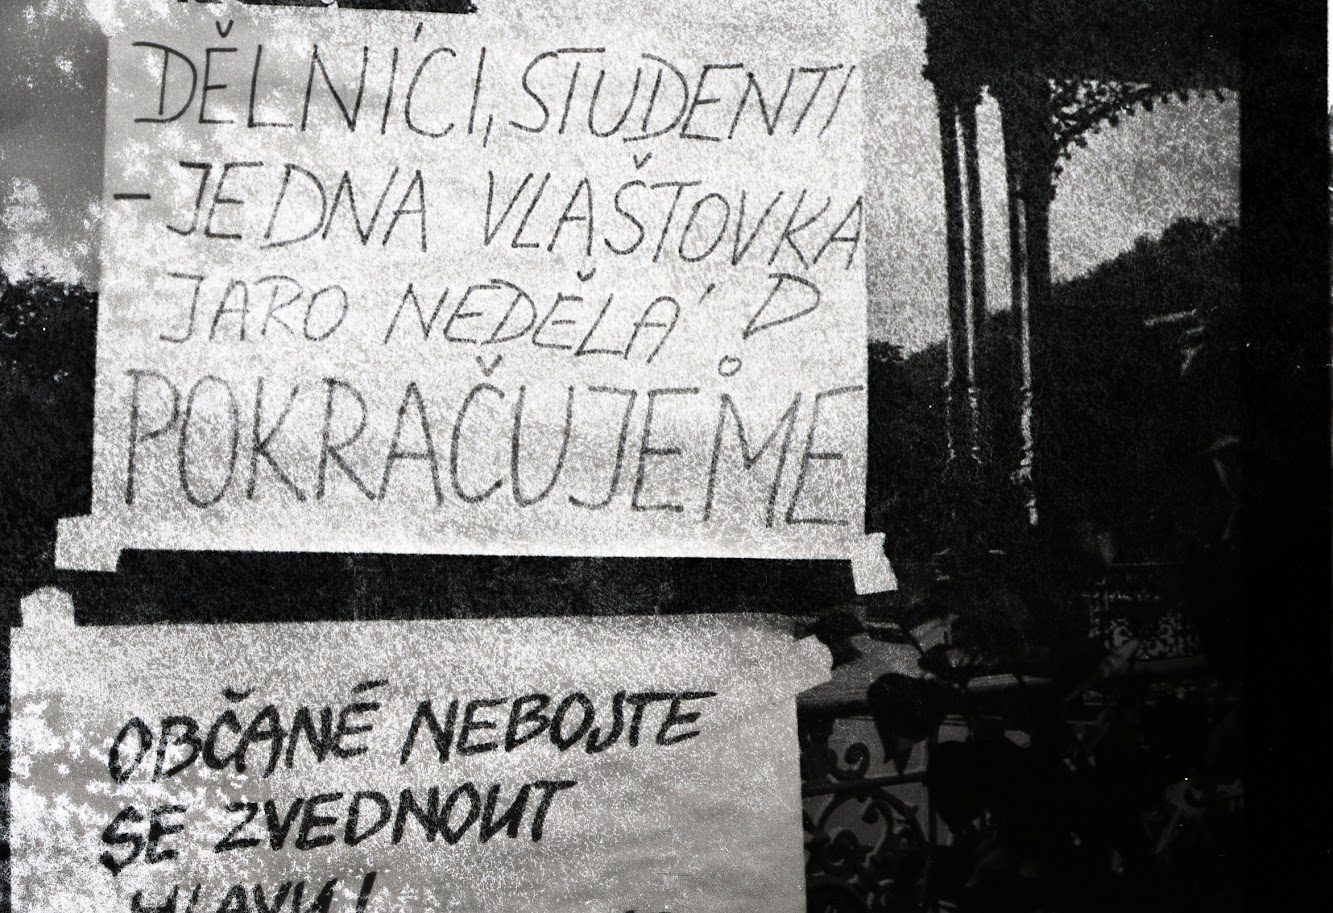 DĚLNÍCI, STUDENTI
- JEDNA VLAŠTOVKA
JARO NEDĚLÁ
POKRAČUJEME
OBČANÉ NEBOJTE
SE ZVEDNOUT
HLAVU!